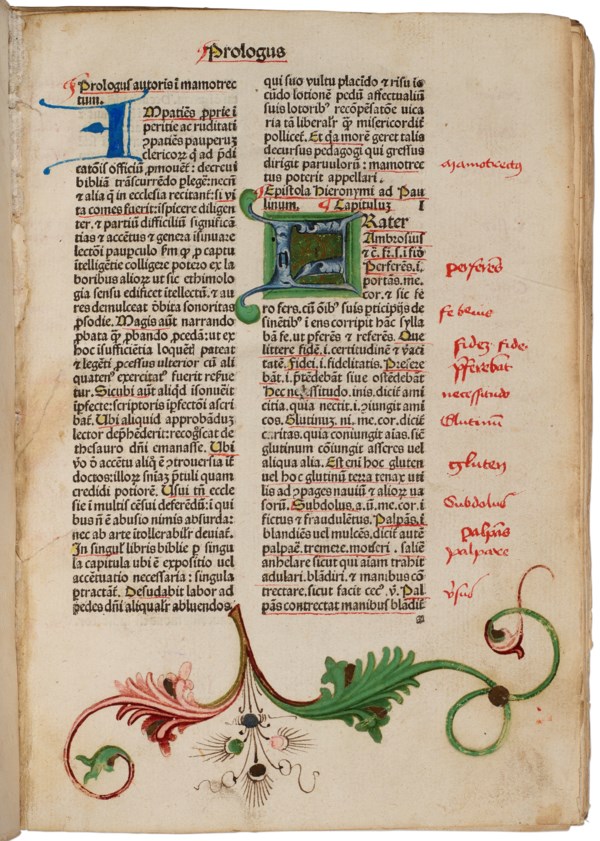 Prologus
Prologus autoris ĩ mamotrec
tum.
IMpatiẽs ꝓprie ĩ
peritie ac ruditati
ꝯpatiẽs pauperuꝫ
clericorꝝ q̃ ad p̃di
catõis officiũ ꝓmouẽt: decreui
bibliã trãscurrẽdo plegẽ: necñ
⁊ alia q̃ in ecclesia recitant: si vi
ta comes fuerit: ispicere diligen
ter. ⁊ partiũ difficiliũ significã
tias ⁊ accẽtus ⁊ genera
lectori paupculo
itelligẽtie colligere potero ex la
boribus alioꝝ ut sic ethimolo
gia sensu edificet itellectũ. ⁊ au
res demulceat dbita sonoritas
ꝓsodie. Magis aũt narrando
ꝓbata q̃ ꝓbando ꝓcedã: ut ex
hoc isufficiẽtia loquẽtĩ pateat
⁊ legẽti ꝓcessus ulterior cũ ali
quatenꝰ exercitatꝰ fuerit refue
tur. Sicubi aũt aliqd isonuerit
ipfecte: scriptoris ipfectõi ascri
bat. Ubi aliquid approbãduꝫ
lector dep̃hẽderit: recogscat de
thesauro dñi emanasse. Ubi
ṽo ð accẽtu aliq̃ ẽ ꝯtrouersia it̃
doctos: illoꝝ sniaꝫ p̃tuli quam
credidi potiorẽ. Usui tñ eccle
sie ĩ multis cẽsui deferẽdũ: ĩ qui
bus ñ ẽ abusio nimis absurda:
nec ab arte itollerabilr̃ deuiat.
In singul' libris biblie ꝑ singu
la capitula ubi ẽ expositio uel
accẽtuatio necessaria: singula
ꝑtractãt. Desudabit labor ad
pedes dñi aliqualr̃ abluendos.
qui suo vultu placido ⁊ risu io
cũdo lotionẽ pedũ affectualiũ
suis lotoribꝰ recõpẽsatõe vica
ria tã liberalr̃ q̃ misericorditer
pollicet. Et qa morẽ geret talis
decursus pedagogi qui gressus
dirigit paruuloꝝ: mamotrec
tus poterit appellari.
Epistola Hieronymi ad Pau
linum. Capituluꝫ I
FRater
Ambrosius
⁊ č. fi. s. i suo
Perferẽs. i.
portãs. me.
cor. ⁊ sic fe
ro fers. cũ oĩbꝰ suis pticipijs de
sinẽtibꝰ ĩ ens corripit hãc sylla
bã fe. ut pferẽs ⁊ referẽs. Que
littere fidẽ. i. certitudinẽ ⁊ ṽaci
tatẽ. Fidei. i. fidelitatis. Prefere
bãt. i. p̃tẽdebãt siue ostẽdebãt
Hec necessitudo. inis. dicit̃ ami
citia. quia nectit. i. piungit ami
cos. Glutinuꝫ. ni. me. cor. dicit̃
caritas. quia coniungit aĩas. sic̃
glutinum cõiungit asseres uel
aliqua alia. Est eni hoc gluten
uel hoc glutinũ terra tenax uti
lis ad ꝯpages nauiũ ⁊ alioꝝ va
sorũ. Subdolus. a. ũ. me. cor. i
fictus ⁊ fraudulẽtus. Palpãs. i
blandiẽs uel mulcẽs. dicit̃ autẽ
palpaẽ. tremere. moueri. saliẽ
anhelare sicut qui aiam trahit
adulari. blãdiri. ⁊ manibus cõ
trectare. sicut facit cecꝰ. ṽ. Pal
pãs contrectat manibus blãdit̃
mamotrectꝰ
perferẽs
fidẽꝫ fide.
p̃ferebãt
necessitudo
Glutinũ
gluten
Subdolus
palpãs
palpare
ṽsus